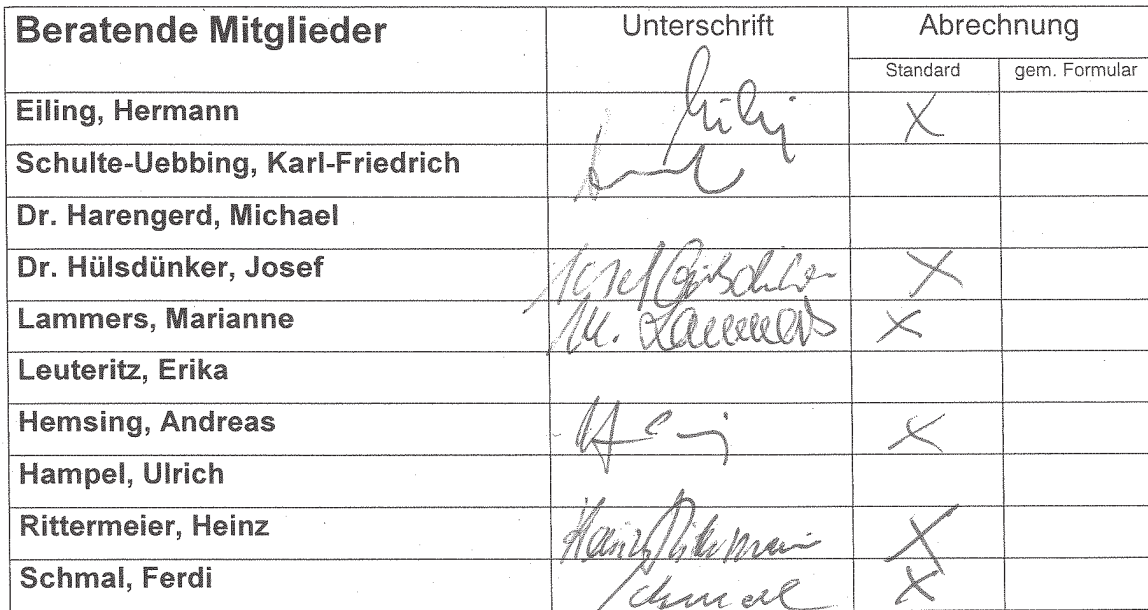 Beratende Mitglieder Unterschrift Abrechnung
Standard gem. Formular
Eiling, Hermann X
Schulte-Uebbing, Karl-Friedrich
Dr. Harengerd, Michael
Dr. Hülsdünker, Josef Josef X
Lammers, Marianne M. Lammers X
Leuteritz, Erika
Hemsing, Andreas X
Hampel, Ulrich
Rittermeier, Heinz Heinz X
Schmal, Ferdi Schmal X